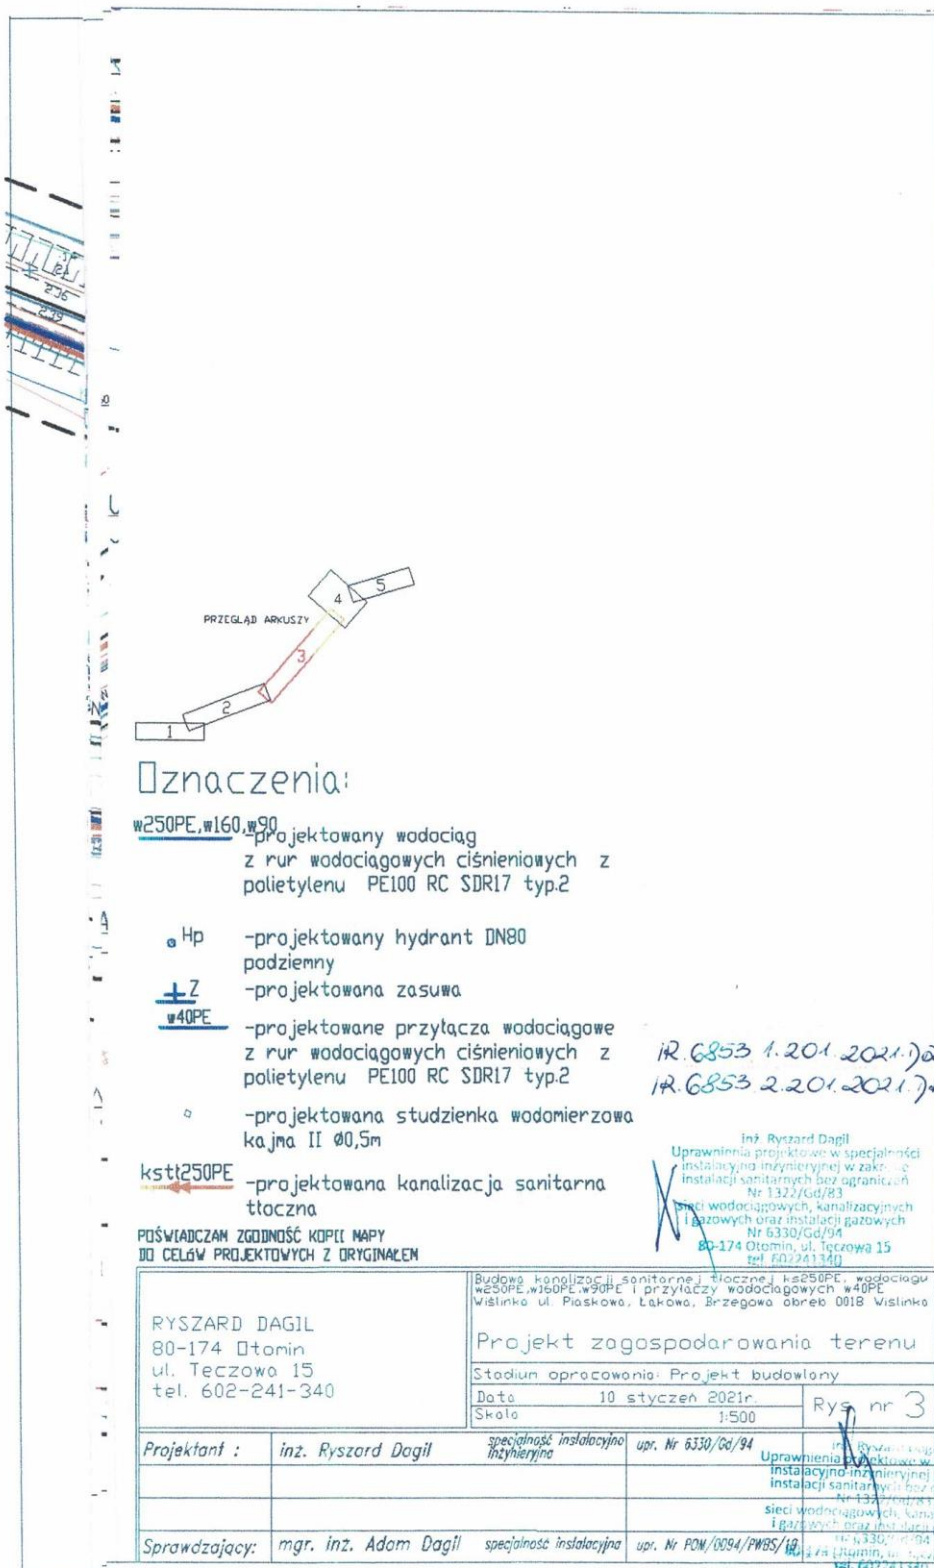 236
239
5
4
PRZEGLĄD ARKUSZY
3
2
1
Oznaczenia:
w250PE,w160,w90
-projektowany wodociąg
z rur wodociągowych ciśnieniowych z
polietylenu PE100 RC SDR17 typ.2
Hp -projektowany hydrant DN80
podziemny
Z -projektowana zasuwa
w40PE
-projektowane przyłącza wodociągowe
z rur wodociągowych ciśnieniowych z
polietylenu PE100 RC SDR17 typ.2
IR.6853.1.201.2021.
IR.6853.2.201.2021.
-projektowana studzienka wodomierzowa
kajma II Ø0,5m
kstł250PE -projektowana kanalizacja sanitarna
tłoczna
inż. Ryszard Dagil
Uprawnienia projektowe w specjalności
instalacyjno-inżynieryjnej w zakresie
instalacji sanitarnych bez ograniczeń
Nr 1322/Gd/83
sieci wodociągowych, kanalizacyjnych
i gazowych oraz instalacji gazowych
Nr 6330/Gd/94
80-174 Otomin, ul. Tęczowa 15
tel. 602241340
POŚWIADCZAM ZGODNOŚĆ KOPII MAPY
DO CELÓW PROJEKTOWYCH Z ORYGINAŁEM
RYSZARD DAGIL
80-174 Otomin
ul. Teczowa 15
tel. 602-241-340
Budowa kanalizacji sanitarnej tłocznej ks250PE, wodociagu
w250PE,w160PE,w90PE i przyłączy wodociągowych w40PE
Wiślinka ul. Piaskowa, Łąkowa, Brzegowa obreb 0018 Wislinka
Projekt zagospodarowania terenu
Stadium opracowania: Projekt budowlany
Data 10 styczeń 2021r.
Skala 1:500
Rys. nr 3
Projektant : inż. Ryszard Dagil specjalność instalacyjno inżynieryjna upr. Nr 6330/Gd/94
Uprawnienia projektowe w
instalacyjno-inżynieryjnej
instalacji sanitarnych bez
Nr 1322/Gd/83
sieci wodociągowych,
i gazowych oraz instalacji
Sprawdzający: mgr. inż. Adam Dagil specjalność instalacyjna upr. Nr POM/0094/PWBS/